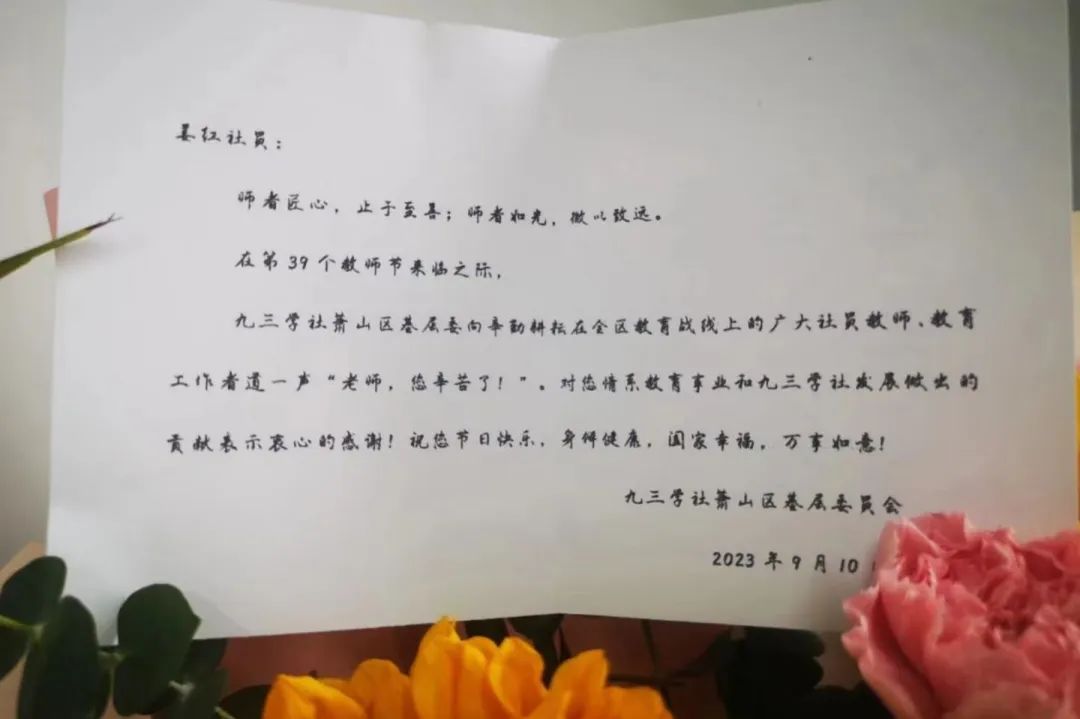 姜红社员：
师者匠心，止于至善；师者如光，微以致远。
在第39个教师节来临之际，
九三学社萧山区基层委向辛勤耕耘在全区教育战线上的广大社员教师、教育
工作者道一声“老师，您辛苦了！”。对您情系教育事业和九三学社发展做出的
贡献表示衷心的感谢！祝您节日快乐，身体健康，阖家幸福，万事如意！
九三学社萧山区基层委员会
2023年9月10